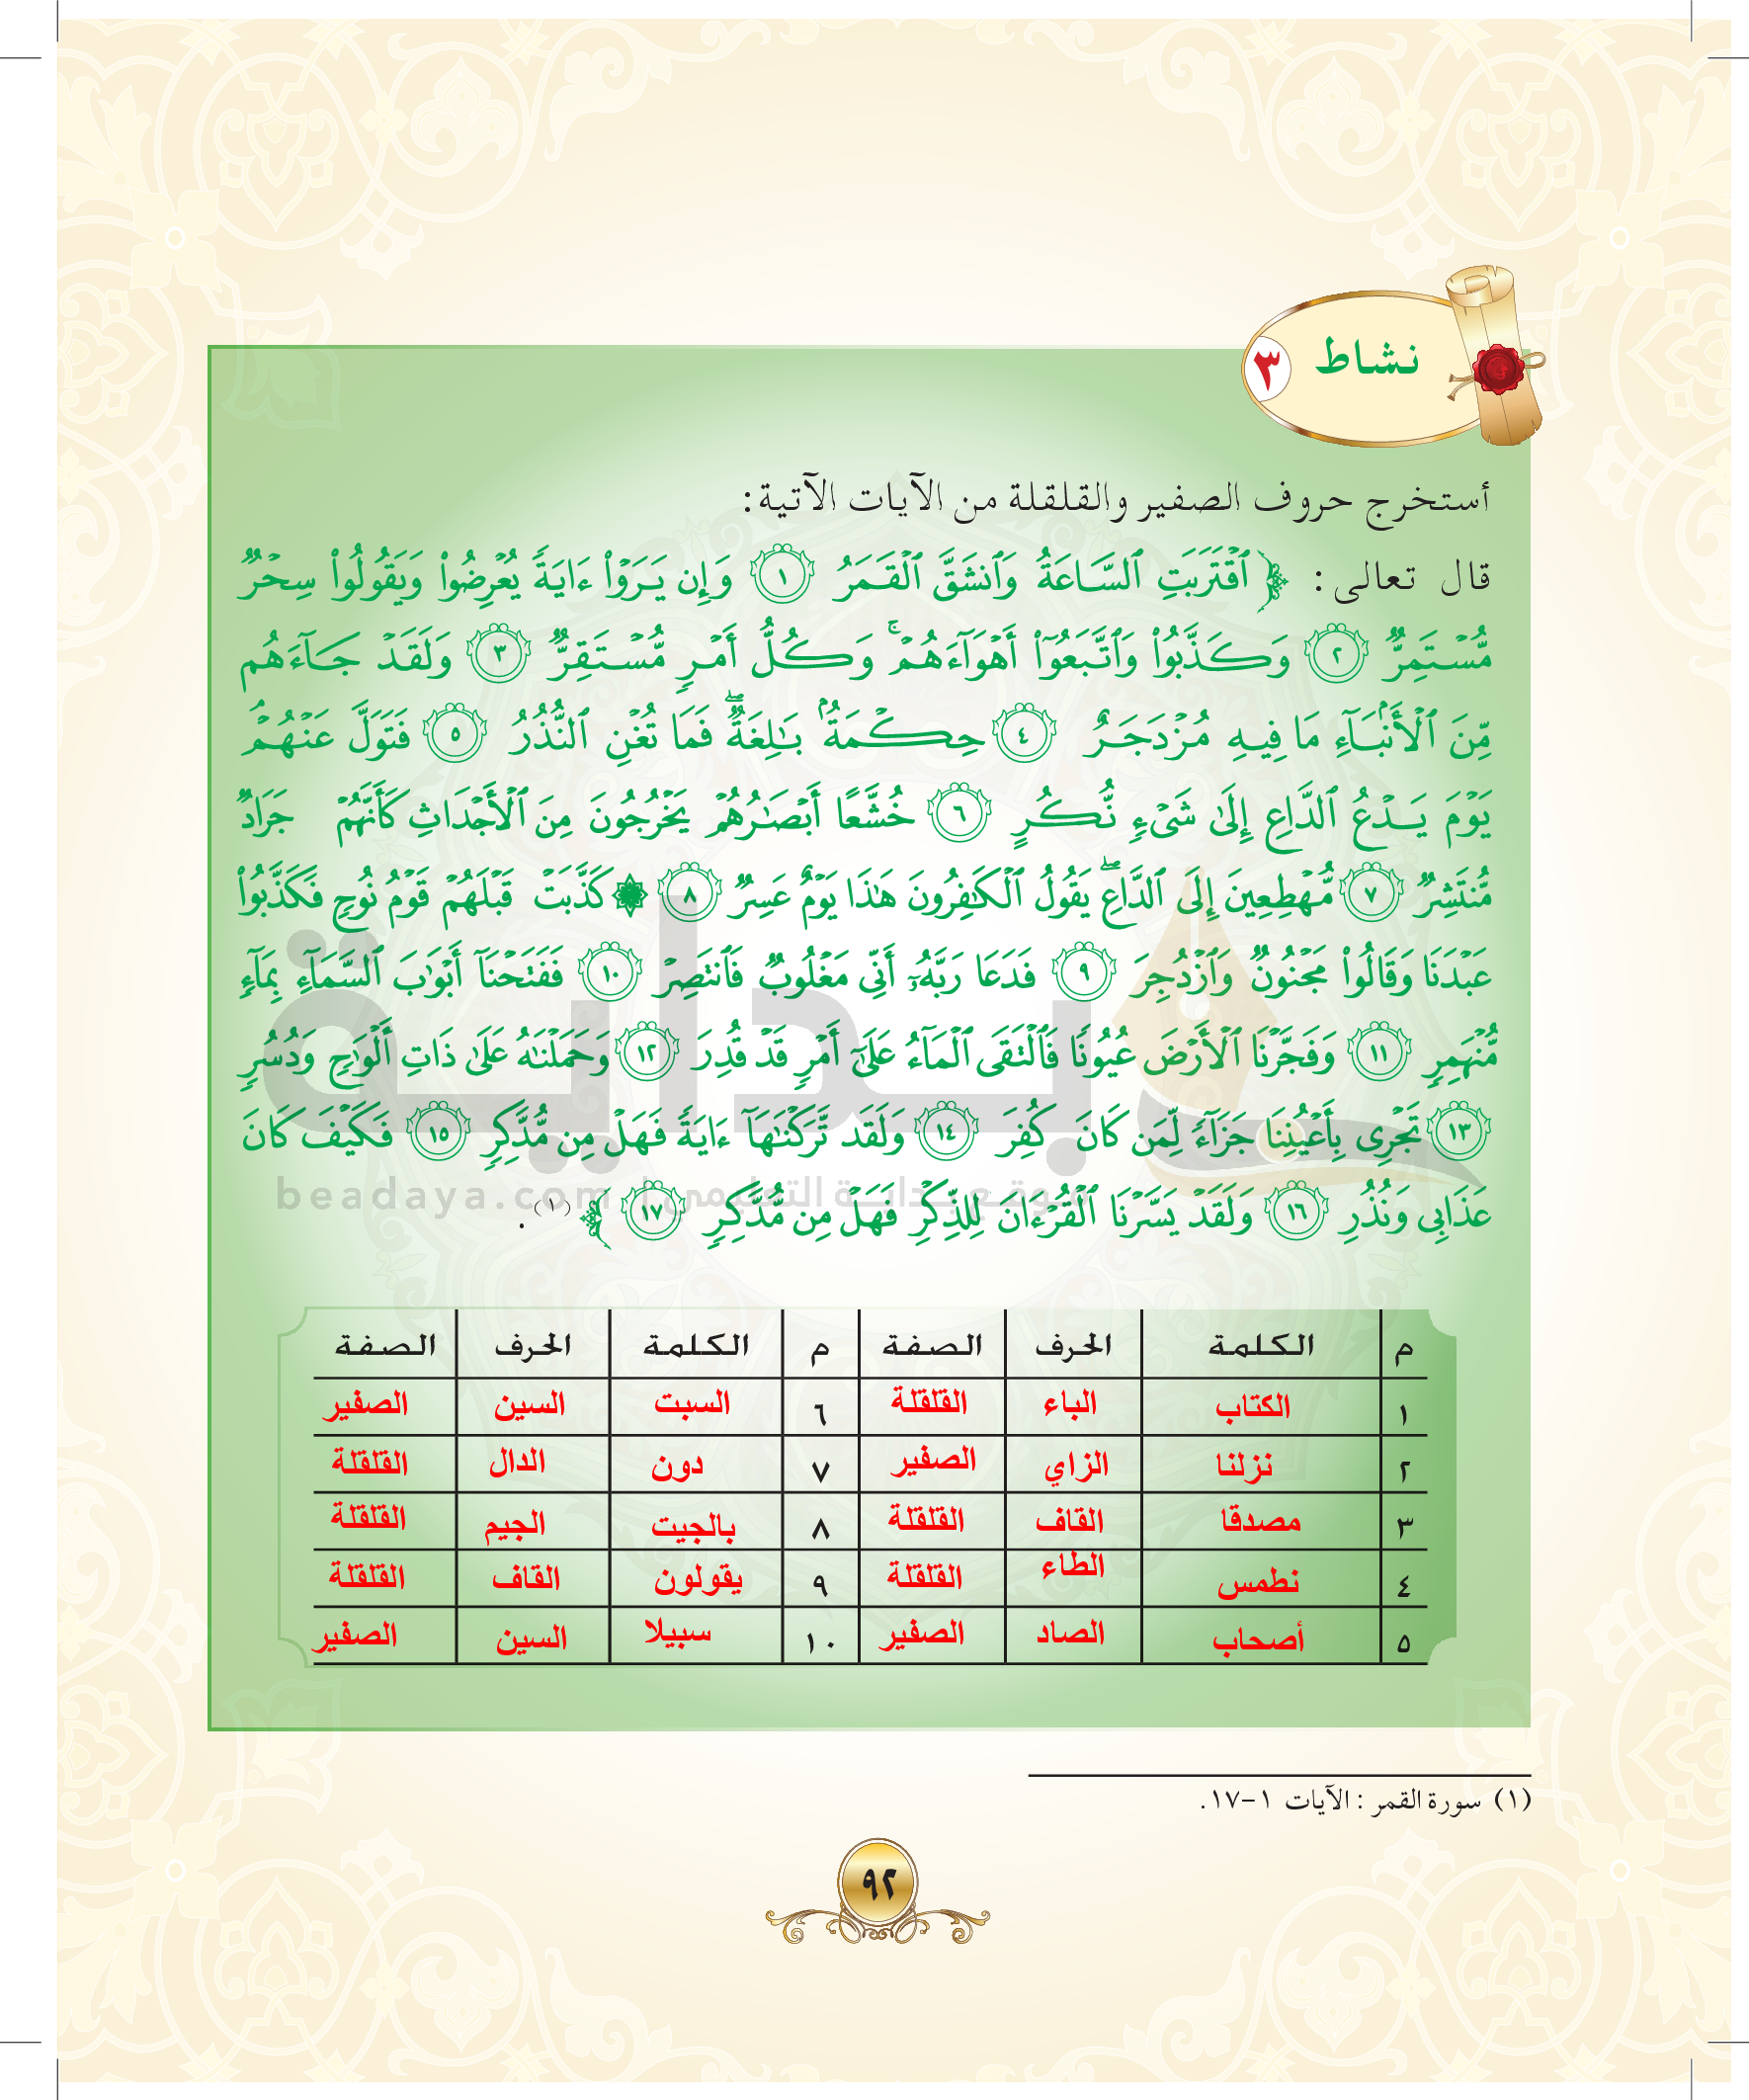 نشاط ٣
أستخرج حروف الصفير والقلقلة من الآيات الآتية:
قال تعالى: ﴿ ٱقْتَرَبَتِ ٱلسَّاعَةُ وَٱنشَقَّ ٱلْقَمَرُ ١ وَإِن يَرَوْا۟ ءَايَةً يُعْرِضُوا۟ وَيَقُولُوا۟ سِحْرٌ
مُّسْتَمِرٌّ ٢ وَكَذَّبُوا۟ وَٱتَّبَعُوٓا۟ أَهْوَآءَهُمْ ۚ وَكُلُّ أَمْرٍ مُّسْتَقِرٌّ ٣ وَلَقَدْ جَآءَهُم
مِّنَ ٱلْأَنۢبَآءِ مَا فِيهِ مُزْدَجَرٌ ٤ حِكْمَةٌۢ بَـٰلِغَةٌ ۖ فَمَا تُغْنِ ٱلنُّذُرُ ٥ فَتَوَلَّ عَنْهُمْ ۘ
يَوْمَ يَدْعُ ٱلدَّاعِ إِلَىٰ شَىْءٍ نُّكُرٍ ٦ خُشَّعًا أَبْصَـٰرُهُمْ يَخْرُجُونَ مِنَ ٱلْأَجْدَاثِ كَأَنَّهُمْ جَرَادٌ
مُّنتَشِرٌ ٧ مُّهْطِعِينَ إِلَى ٱلدَّاعِ ۖ يَقُولُ ٱلْكَـٰفِرُونَ هَـٰذَا يَوْمٌ عَسِرٌ ٨ ۞ كَذَّبَتْ قَبْلَهُمْ قَوْمُ نُوحٍ فَكَذَّبُوا۟
عَبْدَنَا وَقَالُوا۟ مَجْنُونٌ وَٱزْدُجِرَ ٩ فَدَعَا رَبَّهُۥٓ أَنِّى مَغْلُوبٌ فَٱنتَصِرْ ١٠ فَفَتَحْنَآ أَبْوَٰبَ ٱلسَّمَآءِ بِمَآءٍ
مُّنْهَمِرٍ ١١ وَفَجَّرْنَا ٱلْأَرْضَ عُيُونًا فَٱلْتَقَى ٱلْمَآءُ عَلَىٰٓ أَمْرٍ قَدْ قُدِرَ ١٢ وَحَمَلْنَـٰهُ عَلَىٰ ذَاتِ أَلْوَٰحٍ وَدُسُرٍ
١٣ تَجْرِى بِأَعْيُنِنَا جَزَآءً لِّمَن كَانَ كُفِرَ ١٤ وَلَقَد تَّرَكْنَـٰهَآ ءَايَةً فَهَلْ مِن مُّدَّكِرٍ ١٥ فَكَيْفَ كَانَ
عَذَابِى وَنُذُرِ ١٦ وَلَقَدْ يَسَّرْنَا ٱلْقُرْءَانَ لِلذِّكْرِ فَهَلْ مِن مُّدَّكِرٍ ١٧ ﴾ (١).
بداية
موقع بداية التعليمي | beadaya.com
م الكلمة الحرف الصفة م الكلمة الحرف الصفة
١ الكتاب الباء القلقلة ٦ السبت السين الصفير
٢ نزلنا الزاي الصفير ٧ دون الدال القلقلة
٣ مصدقا القاف القلقلة ٨ بالجيت الجيم القلقلة
٤ نطمس الطاء القلقلة ٩ يقولون القاف القلقلة
٥ أصحاب الصاد الصفير ١٠ سبيلا السين الصفير
(١) سورة القمر : الآيات ١-١٧.
٩٢